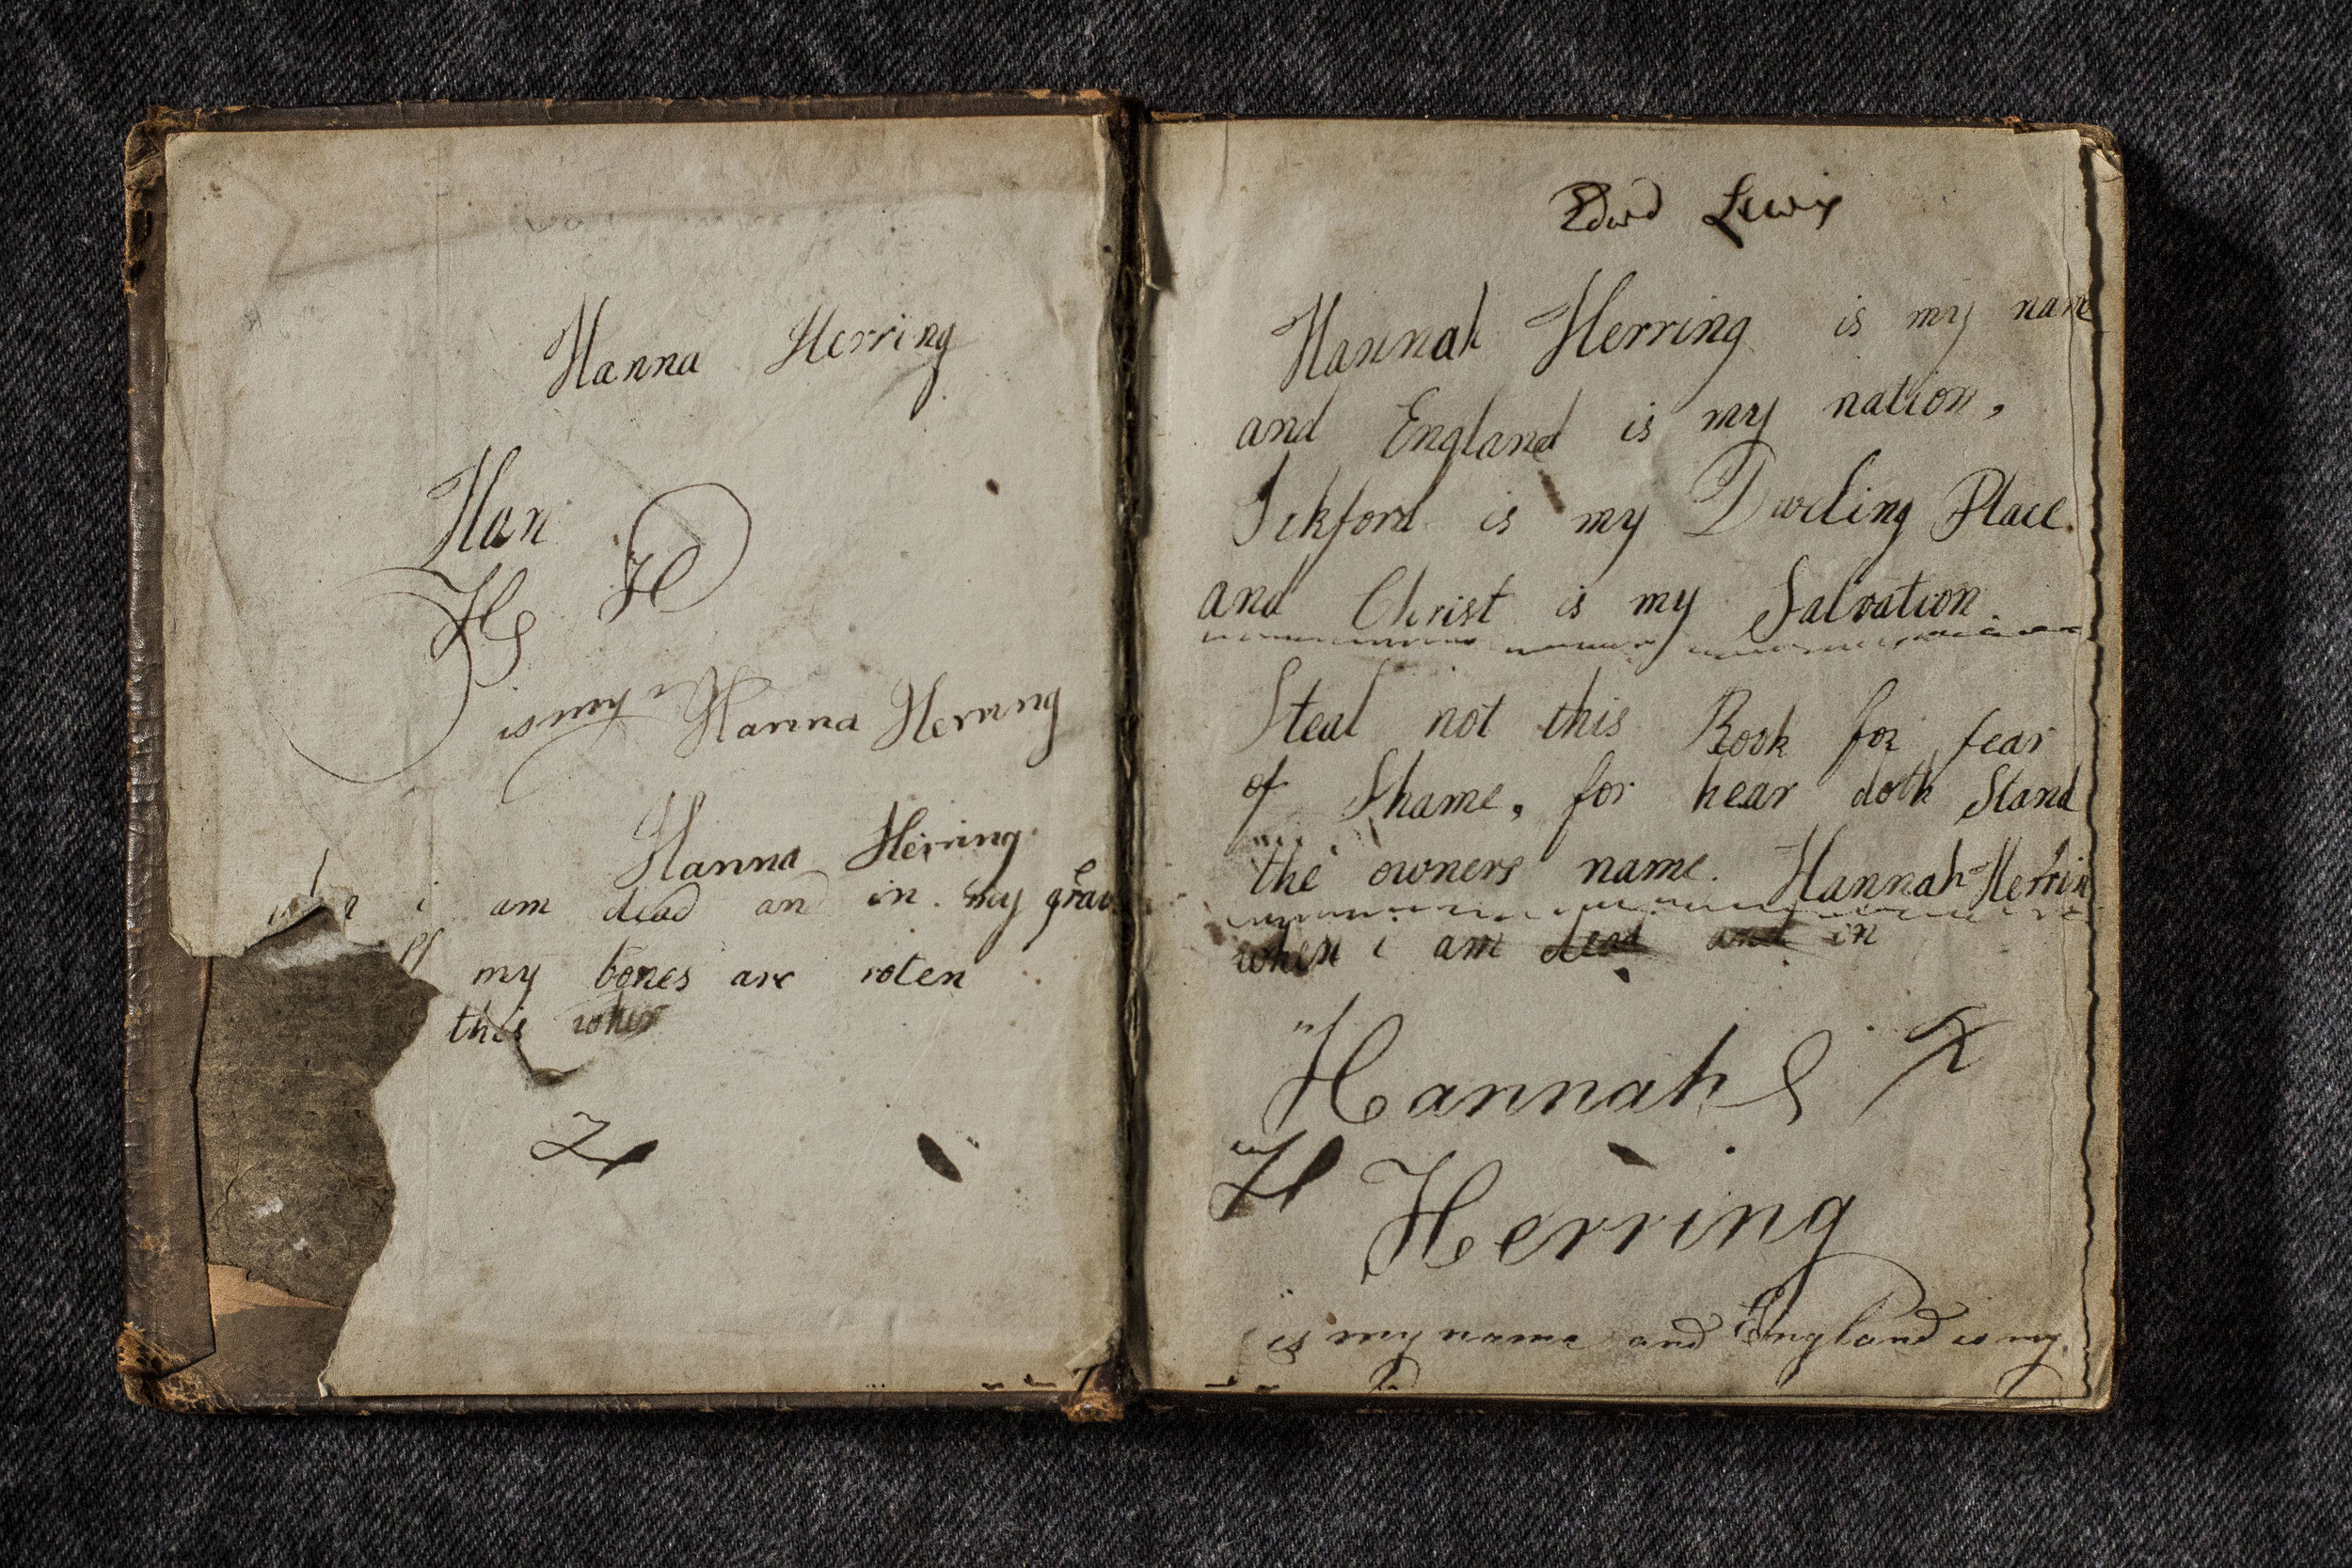 Hanna Herring
Han
H H
is my Hanna Herring
Hanna Herring
i am dead an in my grave
my bones are roten
this when
H
Edwd Lewis
Hannah Herring is my name
and England is my nation,
Ickford is my Dweling Place.
and Christ is my Salvation.
Steal not this Book for fear
of Shame, for hear doth Stand
the owners name. Hannah Herrin
when i am dead and in
Hannah
H Herring
is my name and England is my